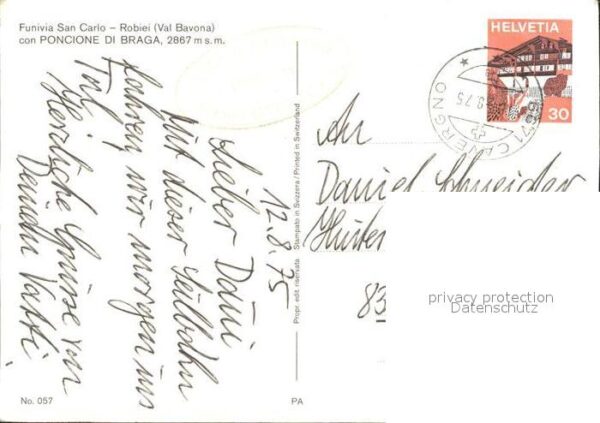 Funivia San Carlo – Robiei (Val Bavona)
con PONCIONE DI BRAGA, 2867 m s.m.
12.8.75
Lieber Dani
Mit dieser Seilbahn
fahren wir morgen ins
Tal!
Herzliche Grüsse von
Deinem Vatti.
No. 057
Propr. edit. riservata Stampato in Svizzera / Printed in Switzerland
PA
HELVETIA
30
6671 CAVERGNO
An
Daniel Schneider
83
privacy protection
Datenschutz